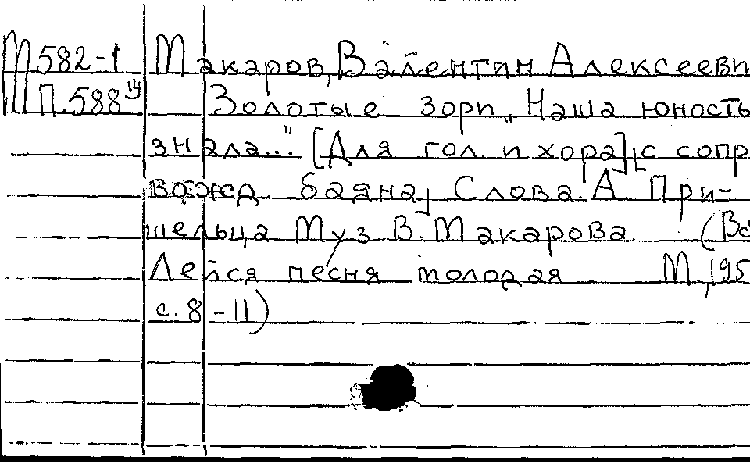 М 582-1 Макаров, Валентин Алексееви
П.588 Золотые зори „Наша юность
знала..." [Для гол. и хора] с сопр
вожд баяна, Слова А При-
шельца Муз В. Макарова (Вс
Лейся песня молодая М, 195
с. 8-11)